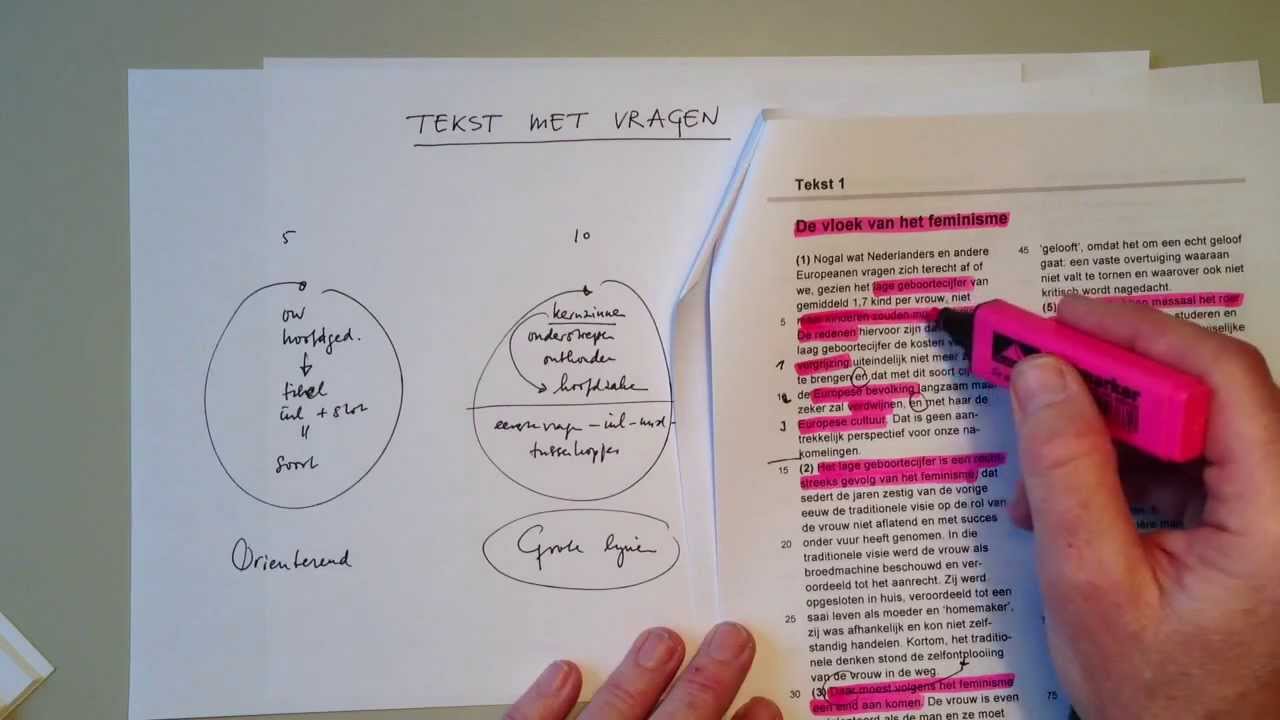 TEKST MET VRAGEN
5
ow
hoofdged.
titel
inl + slot
"
Soort
Orienterend
10
kernzinnen
onderstrepen
onthouden
hoofdzaken
eerste vraag – inl –
tussenkopjes
Grote lijnen
Tekst 1
De vloek van het feminisme
(1) Nogal wat Nederlanders en andere
Europeanen vragen zich terecht af of
we, gezien het lage geboortecijfer van
gemiddeld 1,7 kind per vrouw, niet
5 meer kinderen zouden
De redenen hiervoor zijn
laag geboortecijfer de kosten
1 vergrijzing uiteindelijk niet meer
te brengen en dat met dit soort
10 2 de Europese bevolking langzaam maar
zeker zal verdwijnen, en met haar de
3 Europese cultuur. Dat is geen aan-
trekkelijk perspectief voor onze na-
komelingen.
15 (2) Het lage geboortecijfer is een recht-
streeks gevolg van het feminisme, dat
sedert de jaren zestig van de vorige
eeuw de traditionele visie op de rol van
de vrouw niet aflatend en met succes
20 onder vuur heeft genomen. In die
traditionele visie werd de vrouw als
broedmachine beschouwd en ver-
oordeeld tot het aanrecht. Zij werd
opgesloten in huis, veroordeeld tot een
25 saai leven als moeder en 'homemaker',
zij was afhankelijk en kon niet zelf-
standig handelen. Kortom, het traditio-
nele denken stond de zelfontplooiing
van de vrouw in de weg.
30 (3) Daar moest volgens het feminisme
een eind aan komen. De vrouw is even
als de man en ze moet
45 'gelooft', omdat het om een echt geloof
gaat: een vaste overtuiging waaraan
niet valt te tornen en waarover ook niet
kritisch wordt nagedacht.
(5) massaal het roer
studeren en
75
marker